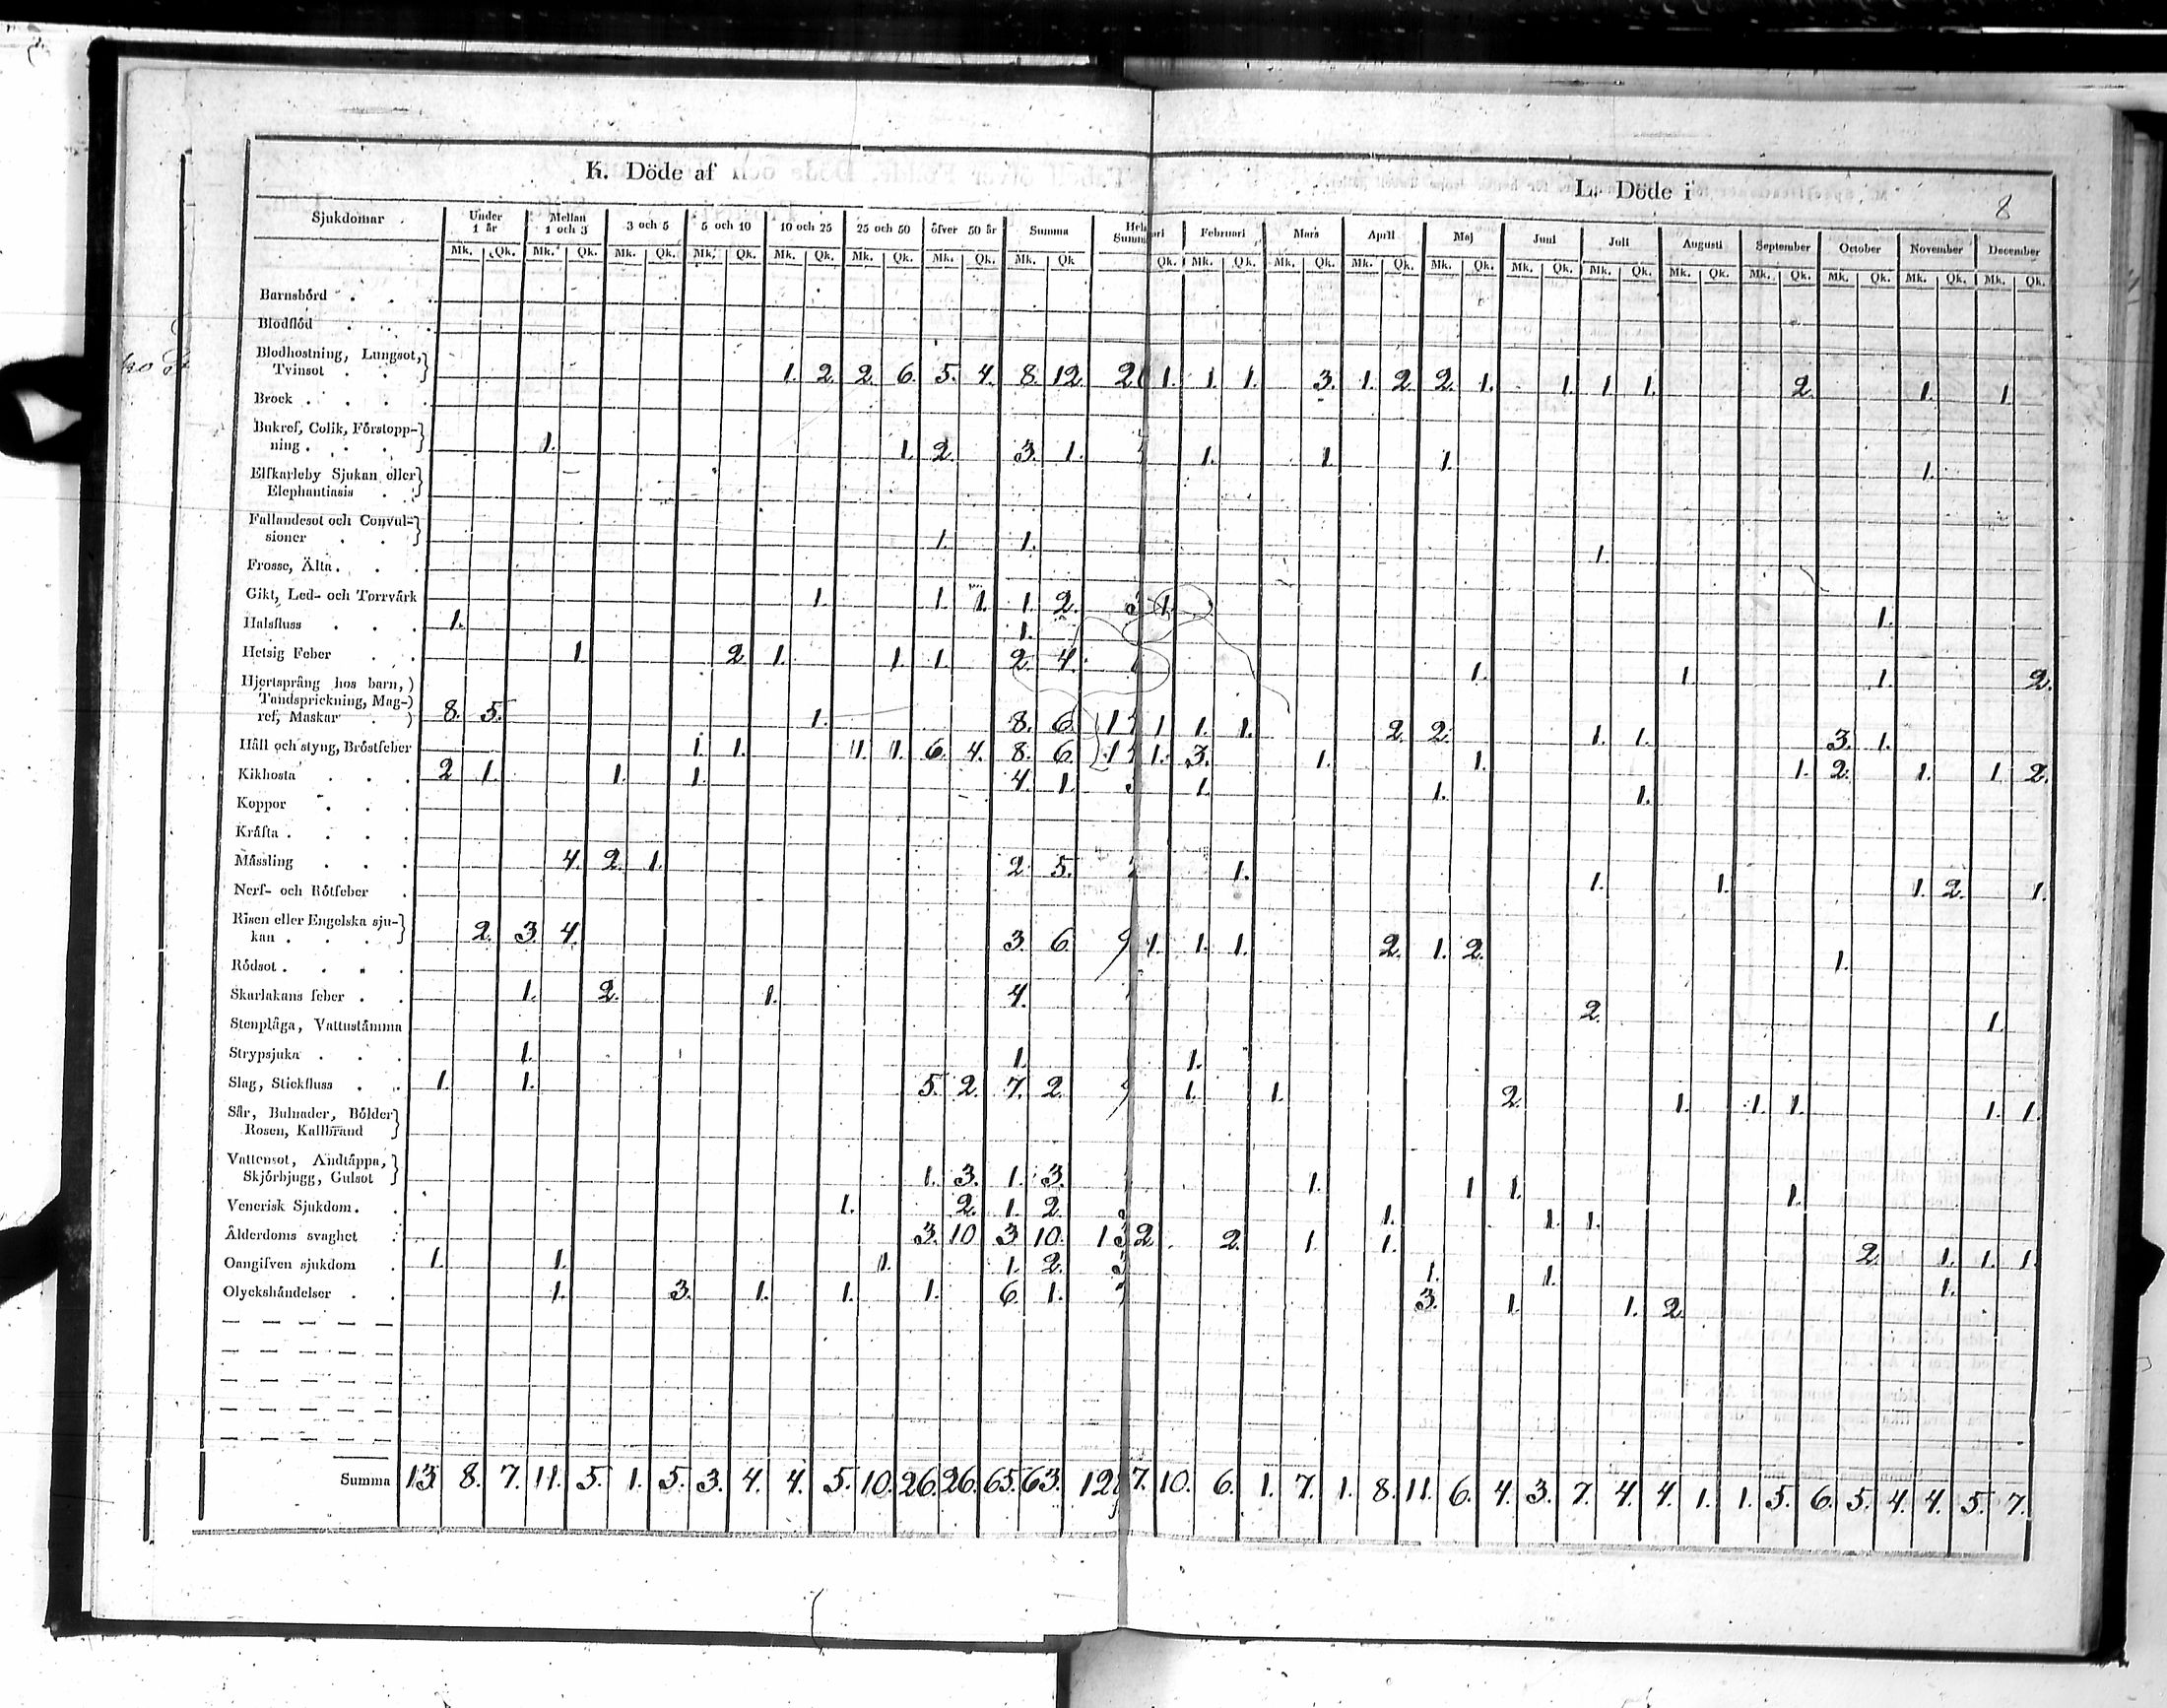 K. Döde af
L. Döde i
8
Sjukdomar Under 1 år Mellan 1 och 3 3 och 5 5 och 10 10 och 25 25 och 50 öfver 50 år Summa Februari Mars April Maj Juni Juli Augusti September October November December
Mk. Qk. Mk. Qk. Mk. Qk. Mk. Qk. Mk. Qk. Mk. Qk. Mk. Qk. Mk. Qk Qk. Mk. Qk. Mk. Qk. Mk. Qk. Mk. Qk. Mk. Qk. Mk. Qk. Mk. Qk. Mk. Qk. Mk. Qk. Mk. Qk. Mk. Qk.
Barnsbörd
Blodflöd
Blodhostning, Lungsot,
Tvinsot 1. 2. 2. 6. 5. 4. 8. 12. 1. 1. 1. 3. 1. 2. 2. 1. 1. 1. 1. 2. 1. 1.
Brock
Bukref, Colik, Förstopp-
ning 1. 1. 2. 3. 1. 1. 1. 1. 1.
Elfkarleby Sjukan eller
Elephantiasis
Fallandesot och Convul-
sioner 1. 1. 1.
Frosse, Älta
Gikt, Led- och Torrvärk 1. 1. 1. 1. 2. 3 1. 1.
Halsfluss 1. 1.
Hetsig Feber 1. 2. 1. 1. 1. 2. 4. 1. 1. 1. 2.
Hjertsprång hos barn,
Tandsprickning, Mag-
ref, Maskar 8. 5. 1. 8. 6. 1 1. 1. 2. 2. 1. 1. 3. 1.
Håll och styng, Bröstfeber 1. 1. 1. 1. 6. 4. 8. 6. 1. 3. 1. 1. 1. 2. 1. 1. 2.
Kikhosta 2 1. 1. 1. 4. 1. 1. 1. 1.
Koppor
Kräfta
Mässling 4. 2. 1. 2. 5. 1. 1. 1. 1. 2. 1.
Nerf- och Rötfeber
Risen eller Engelska sju-
kan 2. 3. 4. 3. 6. 9 1. 1. 1. 2. 1. 2. 1.
Rödsot
Skarlakans feber 1. 2. 1. 4. 2. 1.
Stenplåga, Vattustämma
Strypsjuka 1. 1. 1.
Slag, Stickfluss 1. 1. 5. 2. 7. 2. 9 1. 1. 2. 1. 1. 1. 1. 1.
Sår, Bulnader, Bölder
Rosen, Kallbrand
Vattensot, Andtäppa,
Skjörbjugg, Gulsot 1. 3. 1. 3. 1. 1 1. 1.
Venerisk Sjukdom 1. 2. 1. 2. 1. 1. 1.
Ålderdoms svaghet 3. 10 3. 10. 13 2 2. 1. 1. 2. 1. 1. 1.
Oangifven sjukdom 1. 1. 1. 1. 2. 3 1. 1. 1.
Olyckshändelser 1. 3. 1. 1. 1. 6. 1. 3. 1. 1. 2.
Summa 13 8. 7. 11. 5. 1. 5. 3. 4. 4. 5. 10. 26. 26. 65. 63. 128 7. 10. 6. 1. 7. 1. 8. 11. 6. 4. 3. 7. 4. 4. 1. 1. 5. 6. 5. 4. 4. 5. 7.